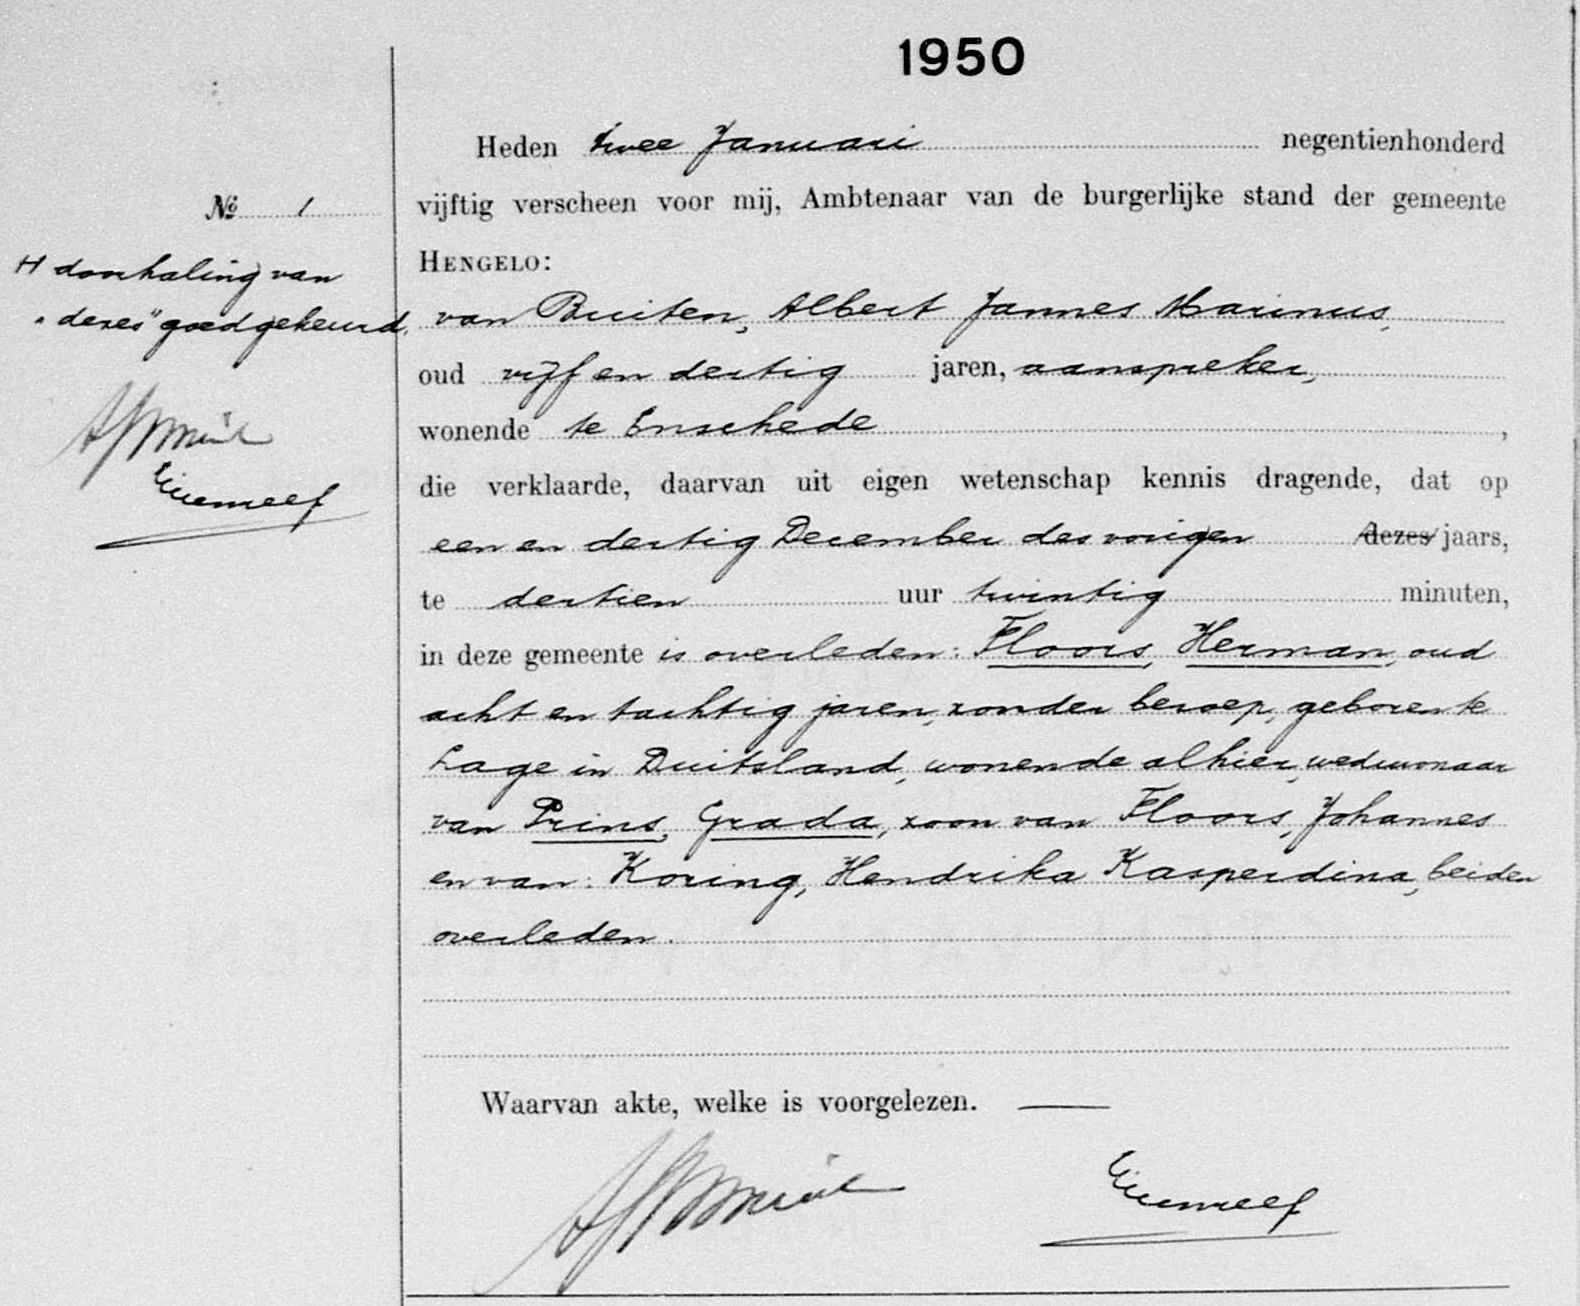 1950
Heden twee Januari negentienhonderd
vijftig verscheen voor mij, Ambtenaar van de burgerlijke stand der gemeente
HENGELO:
van Buiten, Albert Jannes Marinus,
oud vijf en dertig jaren, aanspreker,
wonende te Enschede ,
die verklaarde, daarvan uit eigen wetenschap kennis dragende, dat op
een en dertig December des vorigen dezes jaars,
te dertien uur twintig minuten,
in deze gemeente is overleden: Floors, Herman, oud
acht en tachtig jaren, zonder beroep, geboren te
Lage in Duitsland, wonende alhier, weduwnaar
van Prins, Grada, zoon van Floors, Johannes
en van: Koring, Hendrika Kasperdina, beiden
overleden.
Waarvan akte, welke is voorgelezen.
№ 1
H doorhaling van
"dezes" goedgekeurd.